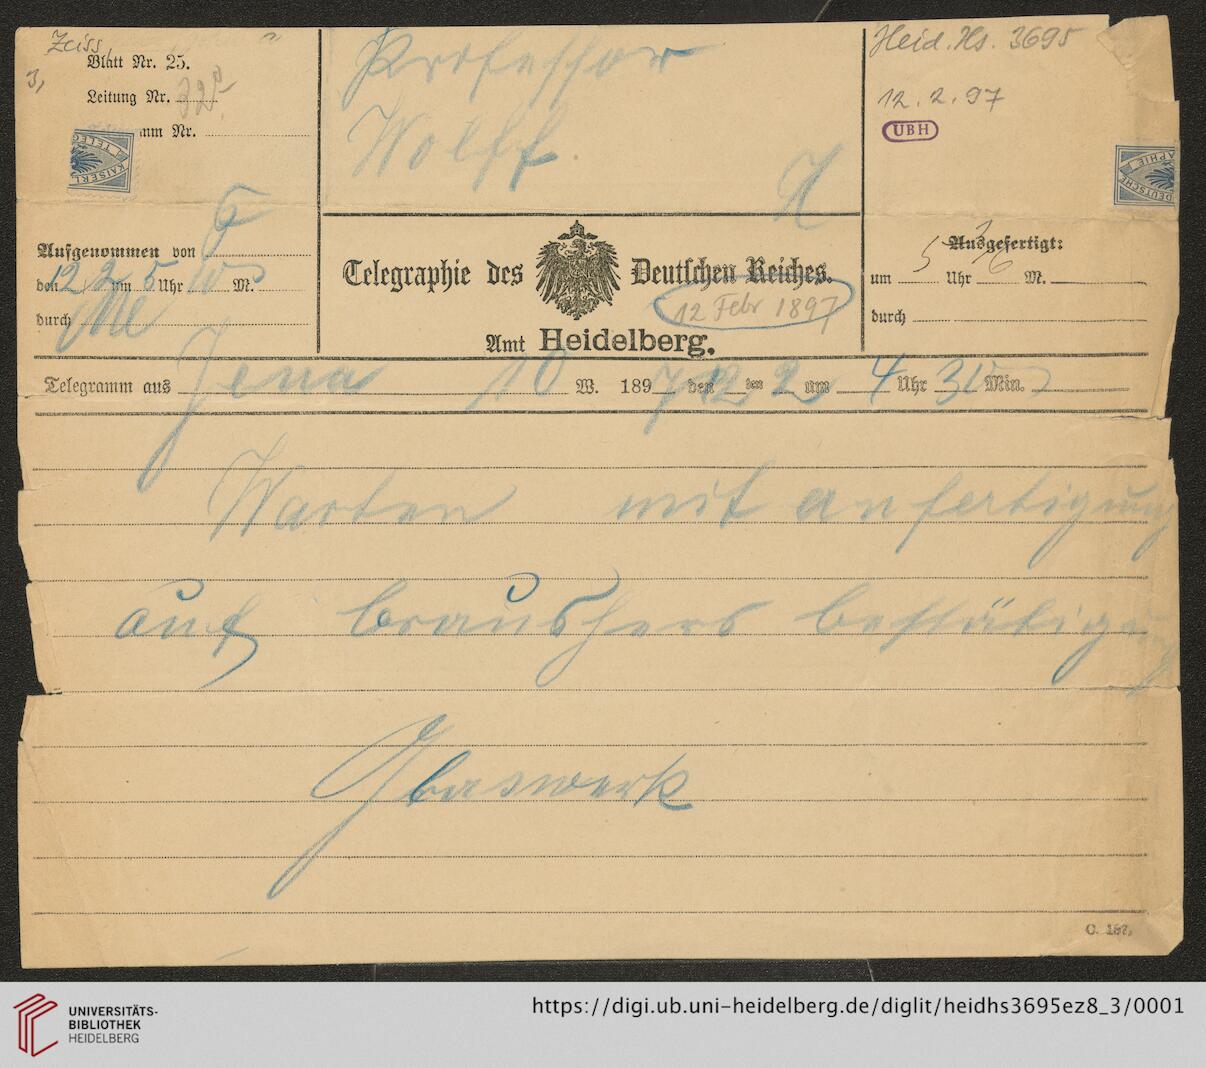 Zeiss,
3,
Blatt Nr. 25.
Leitung Nr.
amm Nr.
Professor
Wolff
H
Heid. Hs. 3695
12. 2. 97
UBH
KAISERL
TELEG
DEUTSCHE
APHIE
Aufgenommen von
den 12/2 um 5 Uhr 10 M.
durch
Telegraphie des Deutschen Reiches.
12 Febr 1897
Amt Heidelberg.
Ausgefertigt:
um 5 Uhr 16 M.
durch
Telegramm aus Jena 10 W. 1897 den 12 ten 2 um 4 Uhr 30 Min.
Warten mit anfertigung
auf brashers bestätigung
Glaswerk
C. 187.
UNIVERSITÄTS-
BIBLIOTHEK
HEIDELBERG
https://digi.ub.uni-heidelberg.de/diglit/heidhs3695ez8_3/0001